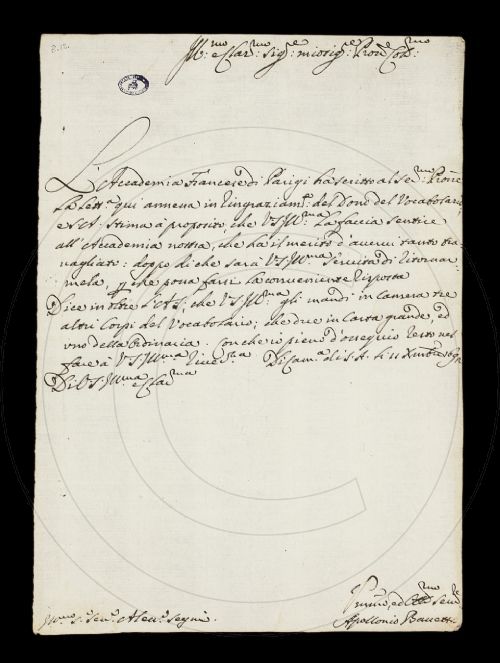 Ill:mo e Clar:mo Sig:re mio Sig:re Pron Col:mo
L'Accademia Francese di Parigi ha scritto al Se:mo Prone
la lett:a qui annessa in ringraziam:o del Dono del Vocabolario
e S.A.S. stima à proposito, che V.S. Ill:ma La faccia sentire
all'Accademia nostra, che ha il merito d'avervi tanto tra
vagliato: doppo di che sarà V.S. Ill:ma servita di ritornar
mela, che possa farsi la conveniente risposta
Dice in oltre S.A.S.; che V.S. Ill:ma gli mandi in Camera tre
altri Corpi del Vocabolario; che due in Carta grande, ed
uno della Ordinaria. Con che io pieno d'ossequio resto nel
fare à V.S. Ill:ma river:za Di Cam:a di S.A. li 11 Xmbre
Di V.S. Ill:ma e Clar:ma
Sen:e Aless:o Segni.
ed Se:re
Apollonio Bassetti